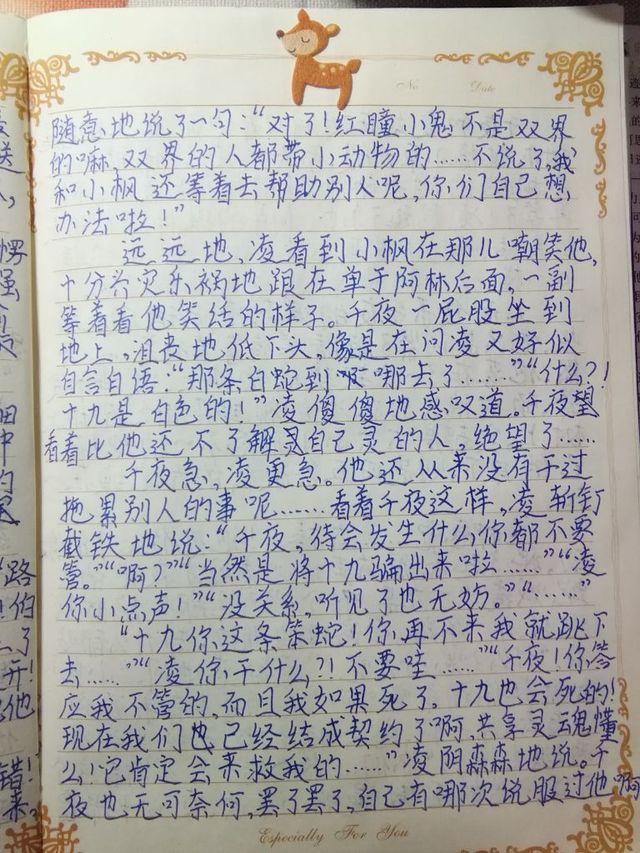 No
Date
随意地说了一句：“对了！红瞳小鬼不是双界
的嘛，双界的人都带小动物的……不说了，我
和小枫还等着去帮助别人呢，你们自己想
办法啦！”
远远地，凌看到小枫在那儿嘲笑他，
十分兴灾乐祸地跟在单于阿林后面，一副
等着看他笑话的样子。千夜一屁股坐到
地上，沮丧地低下头，像是在问凌又好似
自言自语：“那条白蛇到哪去了……”“什么？！
十九是白色的！”凌傻傻地感叹道。千夜望
着比他还不了解灵自己灵的人，绝望了……
千夜急，凌更急。他还从来没有干过
拖累别人的事呢……看着千夜这样，凌斩钉
截铁地说：“千夜，待会发生什么你都不要
管。”“啊？”“当然是将十九骗出来啦……”“凌
你小点声！”“没关系，听见了也无妨。”“……”
“十九你这条笨蛇！你再不来我就跳下
去……”“凌你干什么？！不要哇……”“千夜！你答
应我不管的，而且我如果死了，十九也会死的！
现在我们也已经结成契约了啊，共享灵魂懂
么！它肯定会来救我的……”凌阴森森地说。千
夜也无可奈何，罢了罢了，自己有哪次说服过他啊
Especially For You